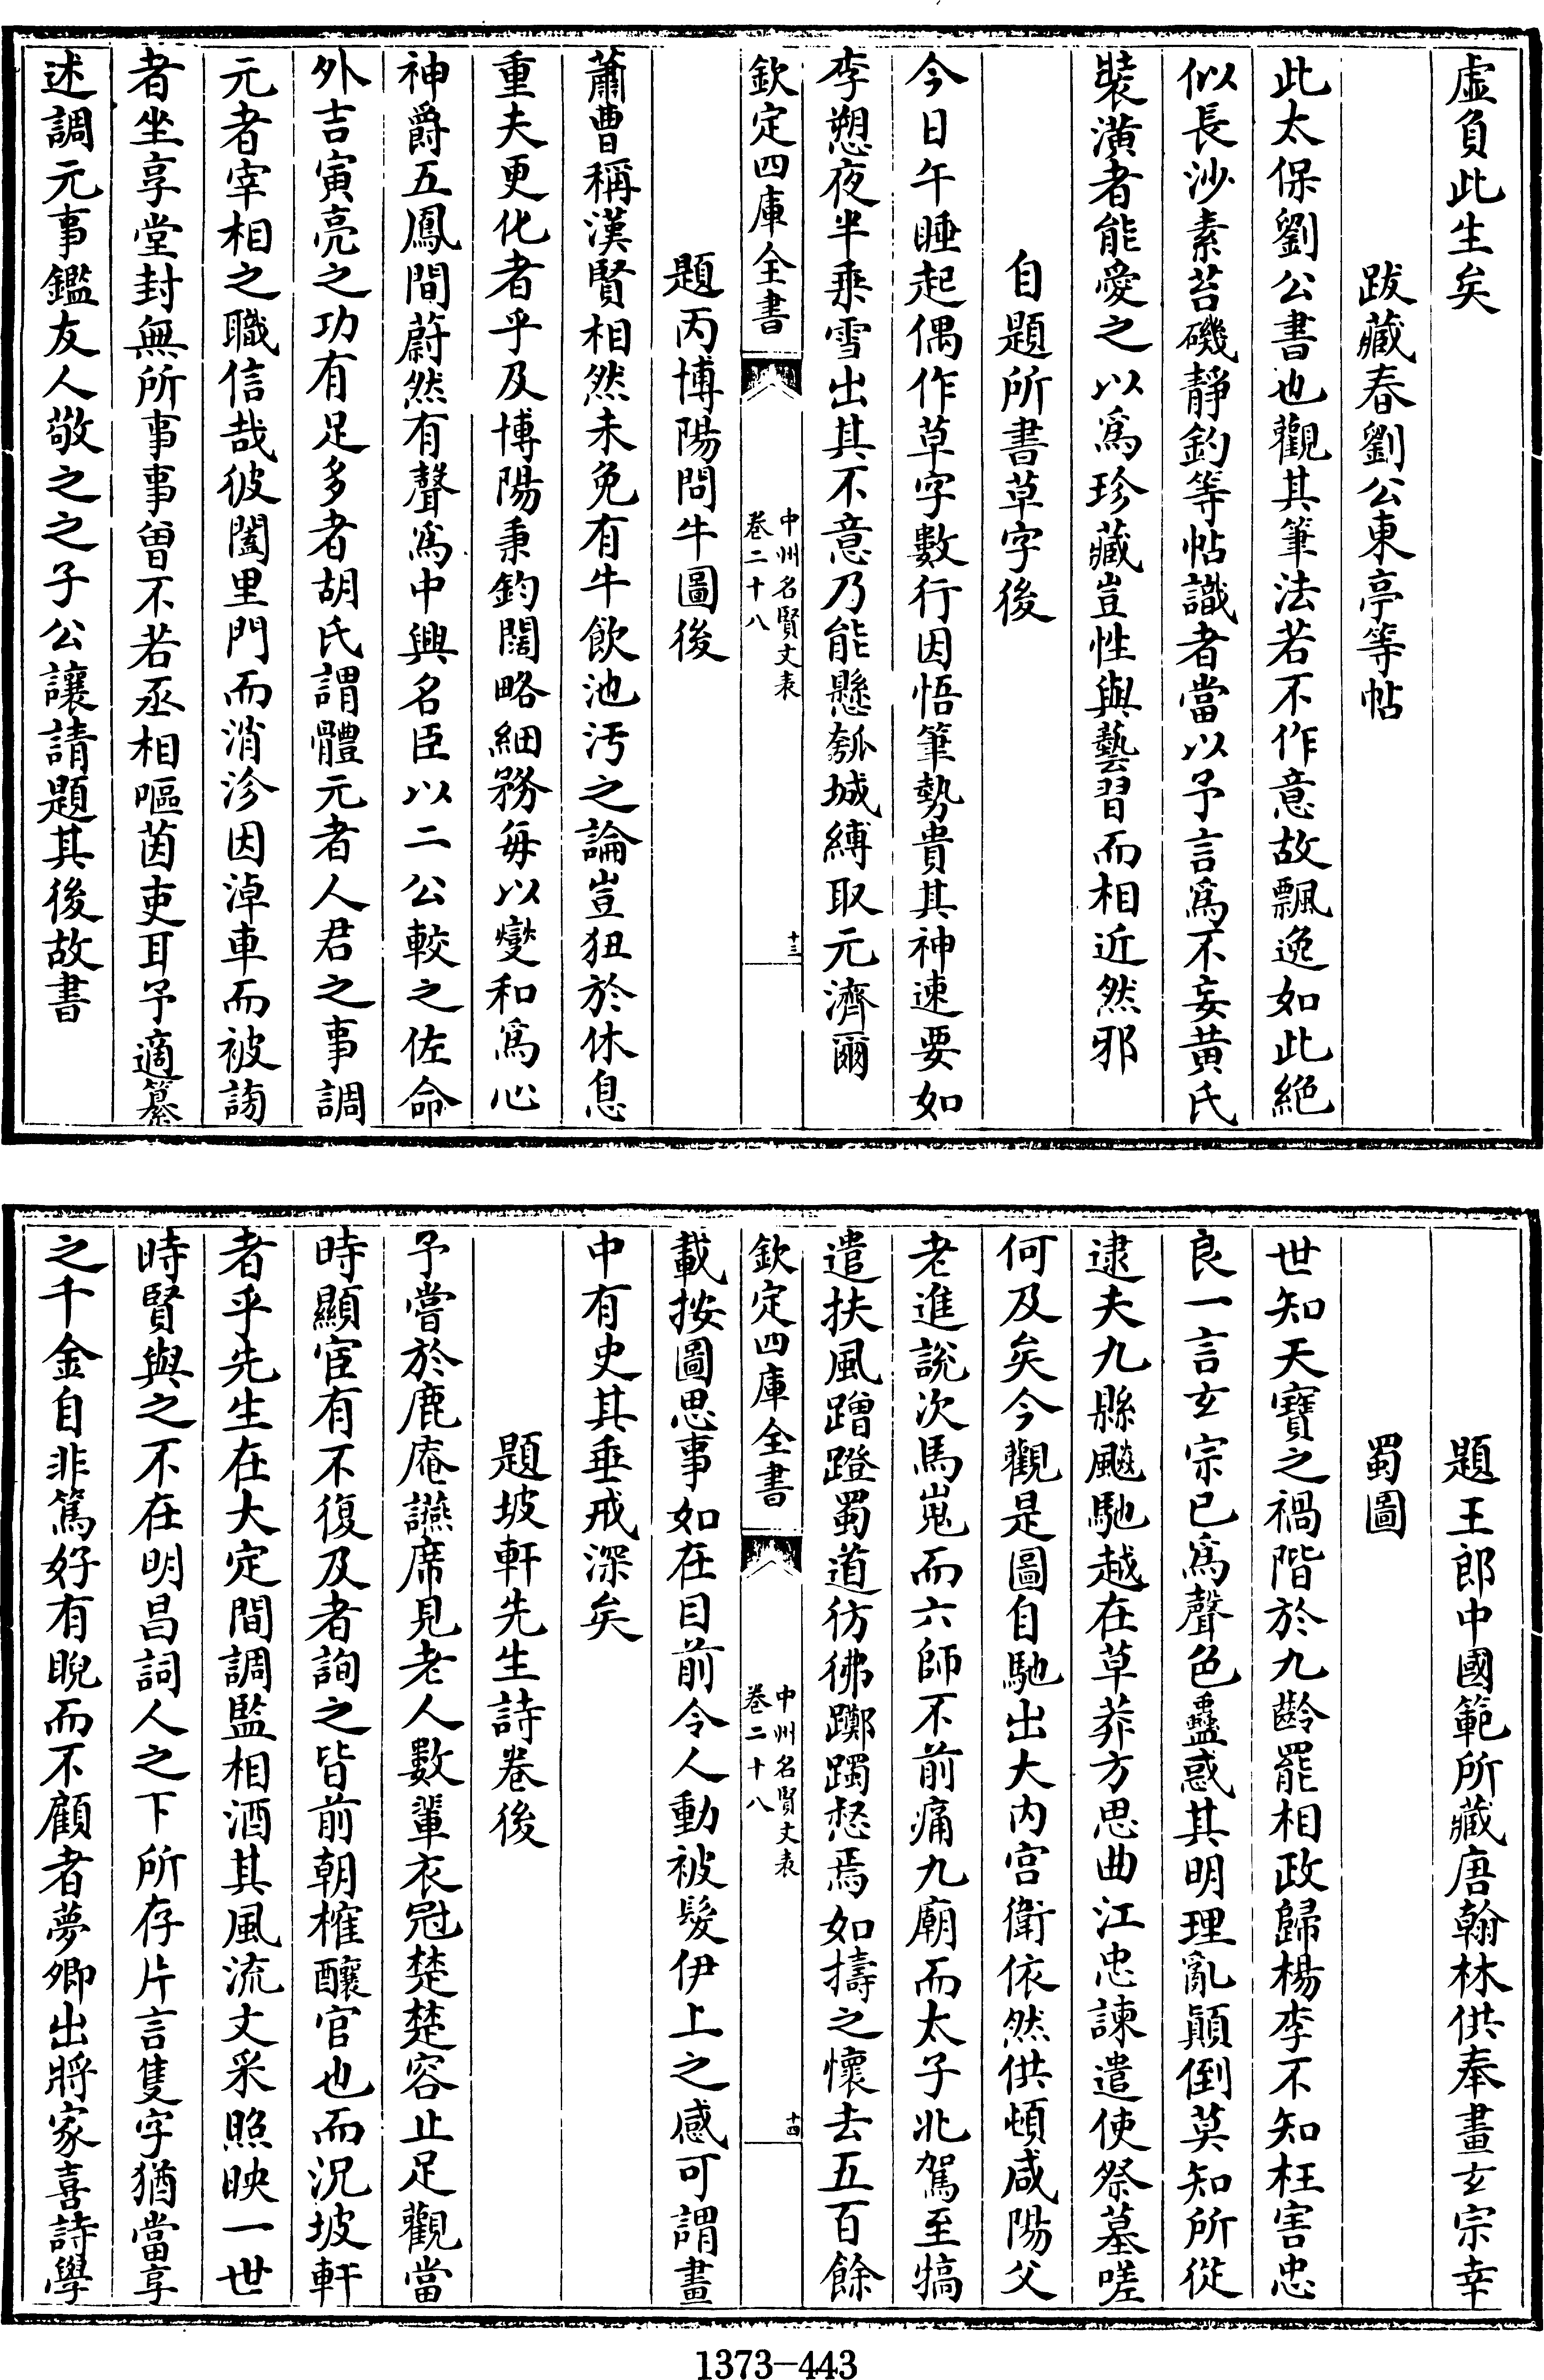 虛負此生矣
跋藏春劉公東亭等帖
此太保劉公書也觀其筆法若不作意故飄逸如此絕
似長沙素苔磯靜釣等帖識者當以予言爲不妄黄氏
裝潢者能愛之以爲珍藏豈性與藝習而相近然邪
自題所書草字後
今日午睡起偶作草字數行因悟筆勢貴其神速要如
李愬夜半乗雪出其不意乃能懸瓠城縛取元濟爾
欽定四庫全書
中州名賢文表
卷二十八
十三
題丙博陽問牛圖後
蕭曹稱漢賢相然未免有牛飲池汚之論豈狃於休息
重夫更化者乎及博陽秉鈞闊略細務毎以燮和爲心
神爵五鳳間蔚然有聲爲中興名臣以二公較之佐命
外吉寅亮之功有足多者胡氏謂體元者人君之事調
元者宰相之職信哉彼闔里門而消沴因淖車而被謗
者坐享堂封無所事事曽不若丞相嘔茵吏耳予適纂
述調元事鑑友人敬之之子公讓請題其後故書
題王郎中國範所藏唐翰林供奉畫玄宗幸
蜀圖
世知天寶之禍階於九齡罷相政歸楊李不知枉害忠
良一言玄宗已爲聲色蠱惑其明理亂顚倒莫知所從
逮夫九縣飈馳越在草莽方思曲江忠諫遣使祭墓嗟
何及矣今觀是圖自馳出大内宫衛依然供頓咸陽父
老進說次馬嵬而六師不前痛九廟而太子北駕至犒
遣扶風蹭蹬蜀道彷彿躑躅愁焉如擣之懷去五百餘
欽定四庫全書
中州名賢文表
卷二十八
十四
載按圖思事如在目前令人動被髮伊上之感可謂畫
中有史其垂戒深矣
題坡軒先生詩卷後
予嘗於鹿庵讌席見老人數輩衣冠楚楚容止足觀當
時顯宦有不復及者詢之皆前朝榷釀官也而況坡軒
者乎先生在大定間調監相酒其風流文采照映一世
時賢與之不在明昌詞人之下所存片言隻字猶當享
之千金自非篤好有睨而不顧者夢卿出將家喜詩學
1373-443